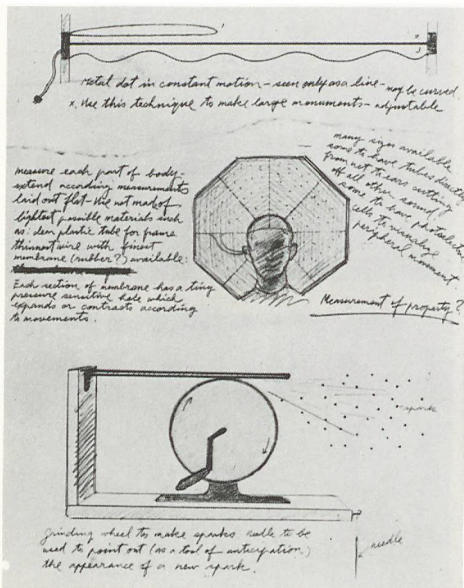 Metal dot in constant motion — seen only as a line — may be curved
x. Use this technique to make large monuments — adjustable
measure each part of body —
extend according measurements
laid out flat — the net made of
lightest possible materials such
as: clear plastic tube for frame
thinnest wire with finest
membrane (rubber?) available:
Each section of membrane has a tiny
pressure sensitive hole which
expands or contracts according
to movements.
many sizes available
some to have tubes directly
from net to ears cutting
off all other sound
some to have photoelectric
cells to visualize
peripheral movement
Measurement of property?
spark
grinding wheel to make sparks needle to be
used to point out (as a tool of anticipation)
the appearance of a new spark.
needle